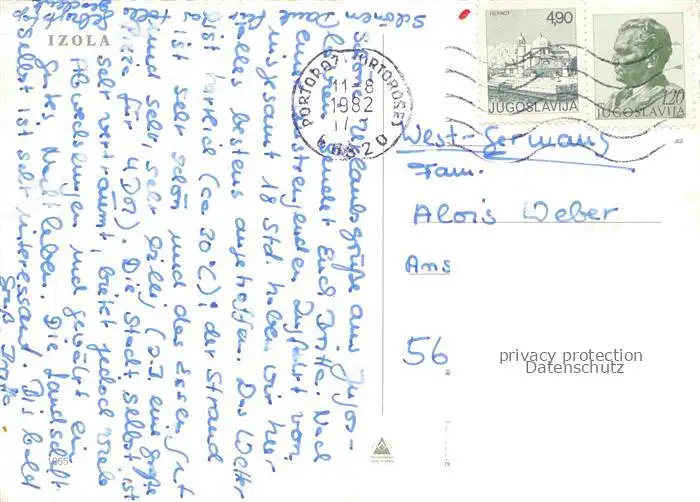 IZOLA
Schöne Urlaubsgrüße aus Jugos-
lawien sendet Euch Britta. Nach
einer anstrengenden Zugfahrt von
insgesamt 18 Std. haben wir hier
alles bestens angetroffen. Das Wetter
ist herrlich (ca 30°C); der Strand
ist sehr schön und das Essen gut
und sehr, sehr billig (z.B. eine große
Pizza für 4 DM). Die Stadt selbst ist
sehr verträumt, bietet jedoch viele
Abwechslungen und gewährt ein
gutes Nachtleben. Die Landschaft
selbst ist sehr interessant. Bis bald
Gruß Britta
Schönen Dank für
das
Geburtstag
865
REPRINT
4,90
JUGOSLAVIJA
1,20
JUGOSLAVIJA
PORTOROŽ PORTOROSE
11-8
1982
17
66320
West-Germany
Fam.
Alois Weber
Ams
56
privacy protection
Datenschutz